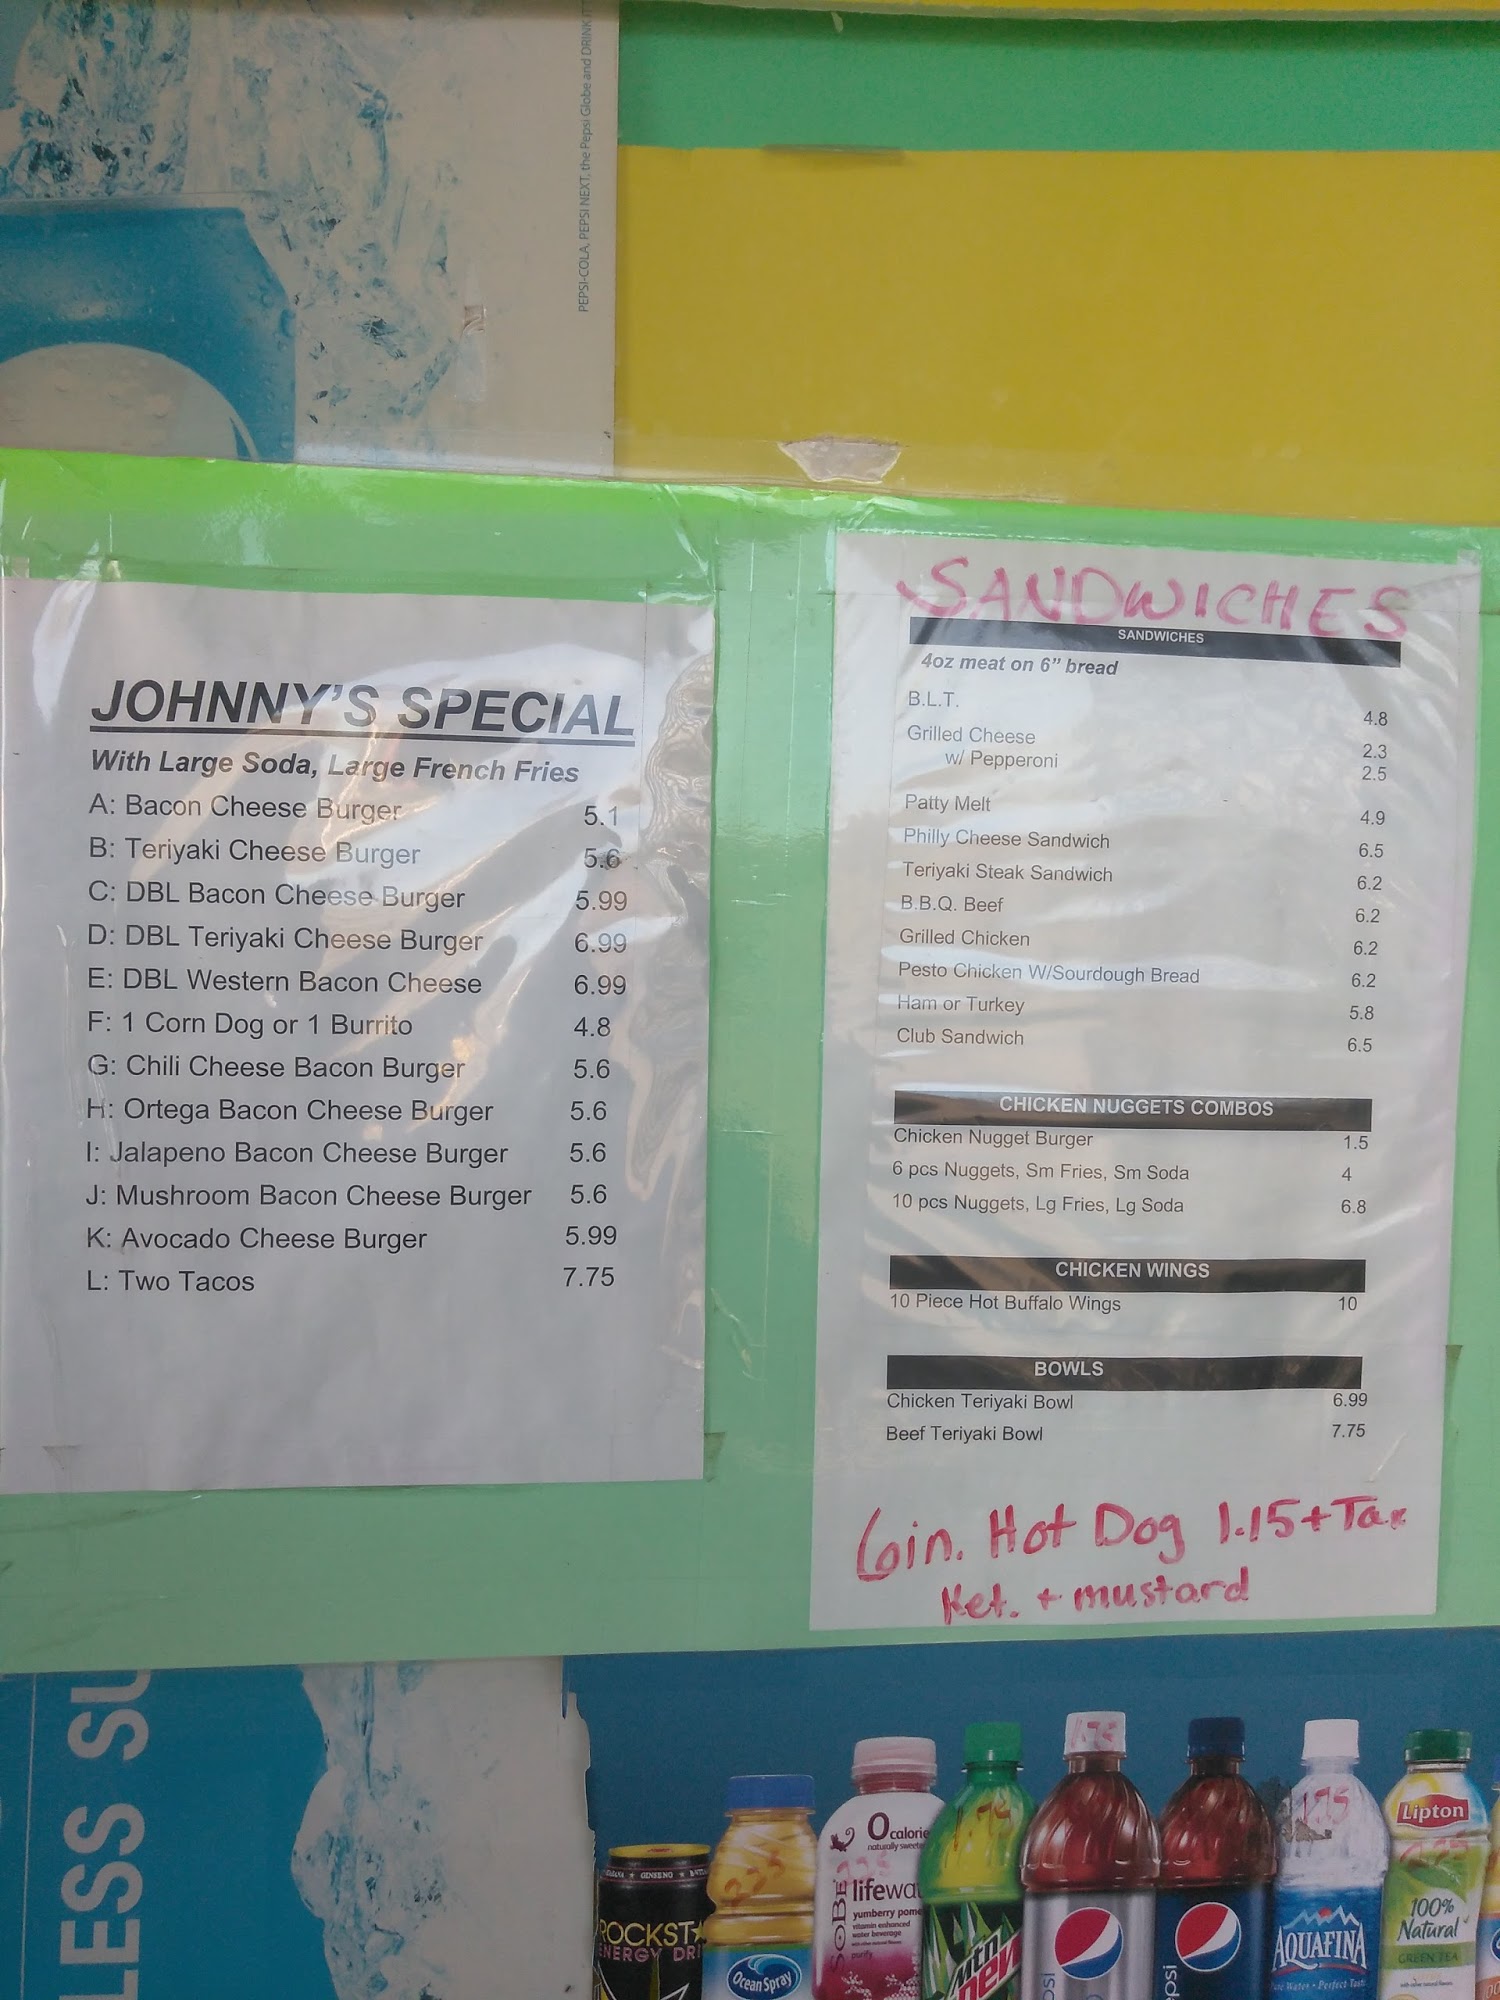 PEPSI-COLA, PEPSI NEXT, the Pepsi Globe and DRINK IT
JOHNNY'S SPECIAL
With Large Soda, Large French Fries
A: Bacon Cheese Burger 5.1
B: Teriyaki Cheese Burger 5.6
C: DBL Bacon Cheese Burger 5.99
D: DBL Teriyaki Cheese Burger 6.99
E: DBL Western Bacon Cheese 6.99
F: 1 Corn Dog or 1 Burrito 4.8
G: Chili Cheese Bacon Burger 5.6
H: Ortega Bacon Cheese Burger 5.6
I: Jalapeno Bacon Cheese Burger 5.6
J: Mushroom Bacon Cheese Burger 5.6
K: Avocado Cheese Burger 5.99
L: Two Tacos 7.75
SANDWICHES
SANDWICHES
4oz meat on 6" bread
B.L.T. 4.8
Grilled Cheese 2.3
w/ Pepperoni 2.5
Patty Melt 4.9
Philly Cheese Sandwich 6.5
Teriyaki Steak Sandwich 6.2
B.B.Q. Beef 6.2
Grilled Chicken 6.2
Pesto Chicken W/Sourdough Bread 6.2
Ham or Turkey 5.8
Club Sandwich 6.5
CHICKEN NUGGETS COMBOS
Chicken Nugget Burger 1.5
6 pcs Nuggets, Sm Fries, Sm Soda 4
10 pcs Nuggets, Lg Fries, Lg Soda 6.8
CHICKEN WINGS
10 Piece Hot Buffalo Wings 10
BOWLS
Chicken Teriyaki Bowl 6.99
Beef Teriyaki Bowl 7.75
6in. Hot Dog 1.15+Tax
Ket. + mustard
LESS SU
GINSENG
ROCKST
ENERGY DRI
2.25
Ocean Spray
0 calorie
naturally sweete
SOBE
lifewat
yumberry pome
vitamin enhanced
water beverage
purify
Mtn Dew
psi
pepsi
1.75
AQUAFINA
Pure Water • Perfect Taste
Lipton
100%
Natural
GREEN TEA